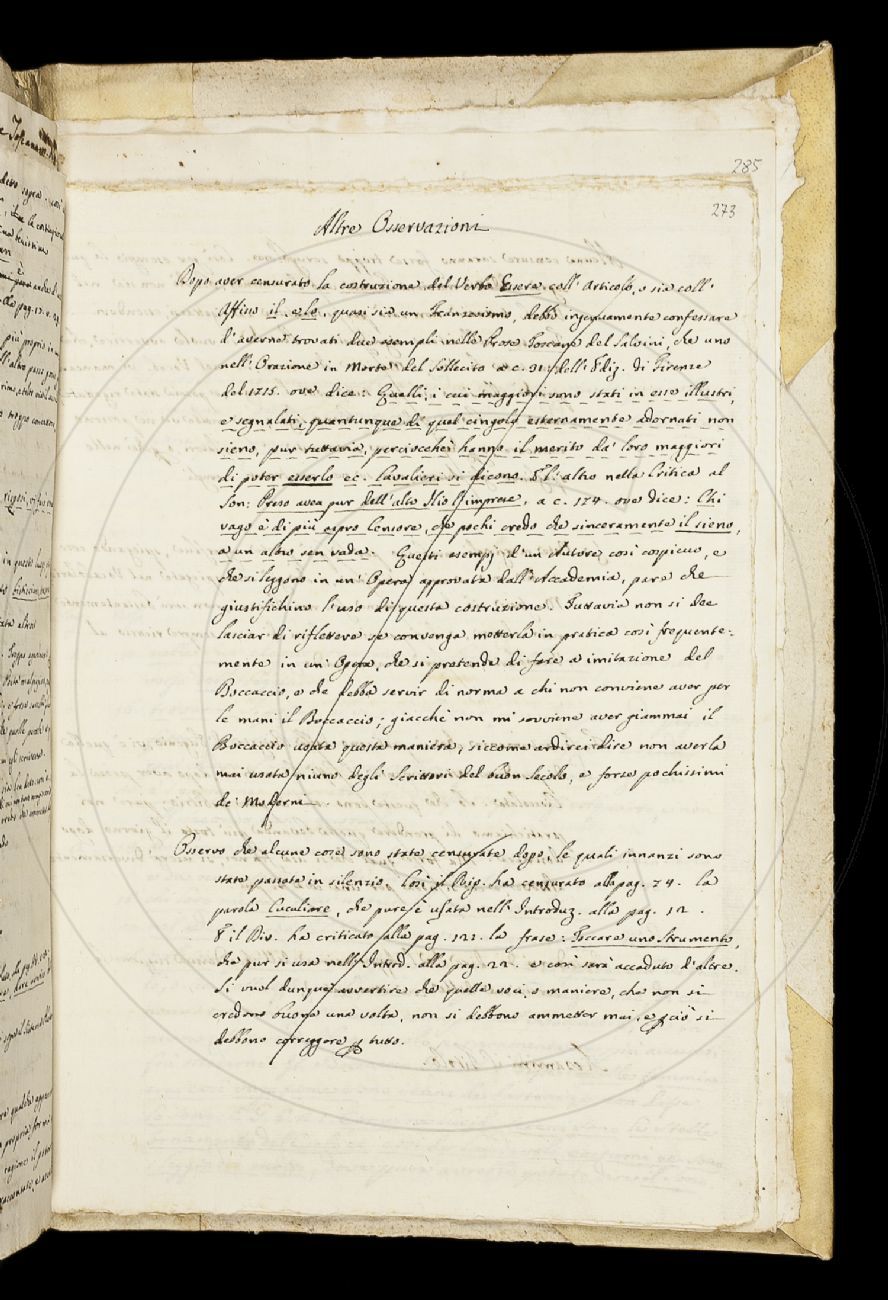 285
273
Altre Osservazioni
Dopo aver censurato la costruzione del Verbo Essere coll' articolo, o sia coll'
Affisso il, e lo, quasi sia un Transitivo, debbo ingenuamente confessare
d'averne trovati due esempli nelle Prose Toscane del Salvini, che uno
nell' Orazione in Morte del Sollecito a c. 91. dell' Ediz. di Firenze
del 1715. ove dice: Quelli, i cui maggiori sono stati in esse illustri,
e segnalati, quantunque di quel cingolo esternamente adornati non
sieno, pur tuttavia, perciocchè hanno il merito da' loro maggiori
di poter esserlo ec. Cavalieri si dicono. E l' altro nella Critica al
Son: Preso avea pur dell' alto Ilio l' imprese, a c. 174. ove dice: Chi
vago è di più aspro Censore, che pochi credo che sinceramente il sieno,
a un altro sen vada. Questi esempj d' un Autore così cospicuo, e
che si leggono in un' Opera approvata dall' Accademia, pare che
giustifichino l' uso di questa costruzione. Tuttavia non si dee
lasciar di riflettere se convenga metterla in pratica così frequente:
mente in un' Opera, che si pretende di fare a imitazione del
Boccaccio, e che debba servir di norma a chi non conviene aver per
le mani il Boccaccio; giacchè non mi sovviene aver giammai il
Boccaccio usata questa maniera, siccome ardirei dire non averla
mai usata niuno degli Scrittori del buon Secolo, e forse pochissimi
de' Moderni.
Osservo che alcune cose sono state censurate dopo, le quali innanzi sono
state passate in silenzio. Così il Rip. ha censurato alla pag. 74. la
parola Cuculiare, che pure è usata nell' Introduz. alla pag. 12.
E il Div. ha criticato alla pag. 121. la frase: Toccare uno Strumento,
che pur si usa nell' Introd. alla pag. 22. e così sarà accaduto d'altre.
Si vuol dunque avvertire che quelle voci, o maniere, che non si
credono buone una volta, non si debbono ammetter mai, e p ciò si
debbono correggere p tutto.